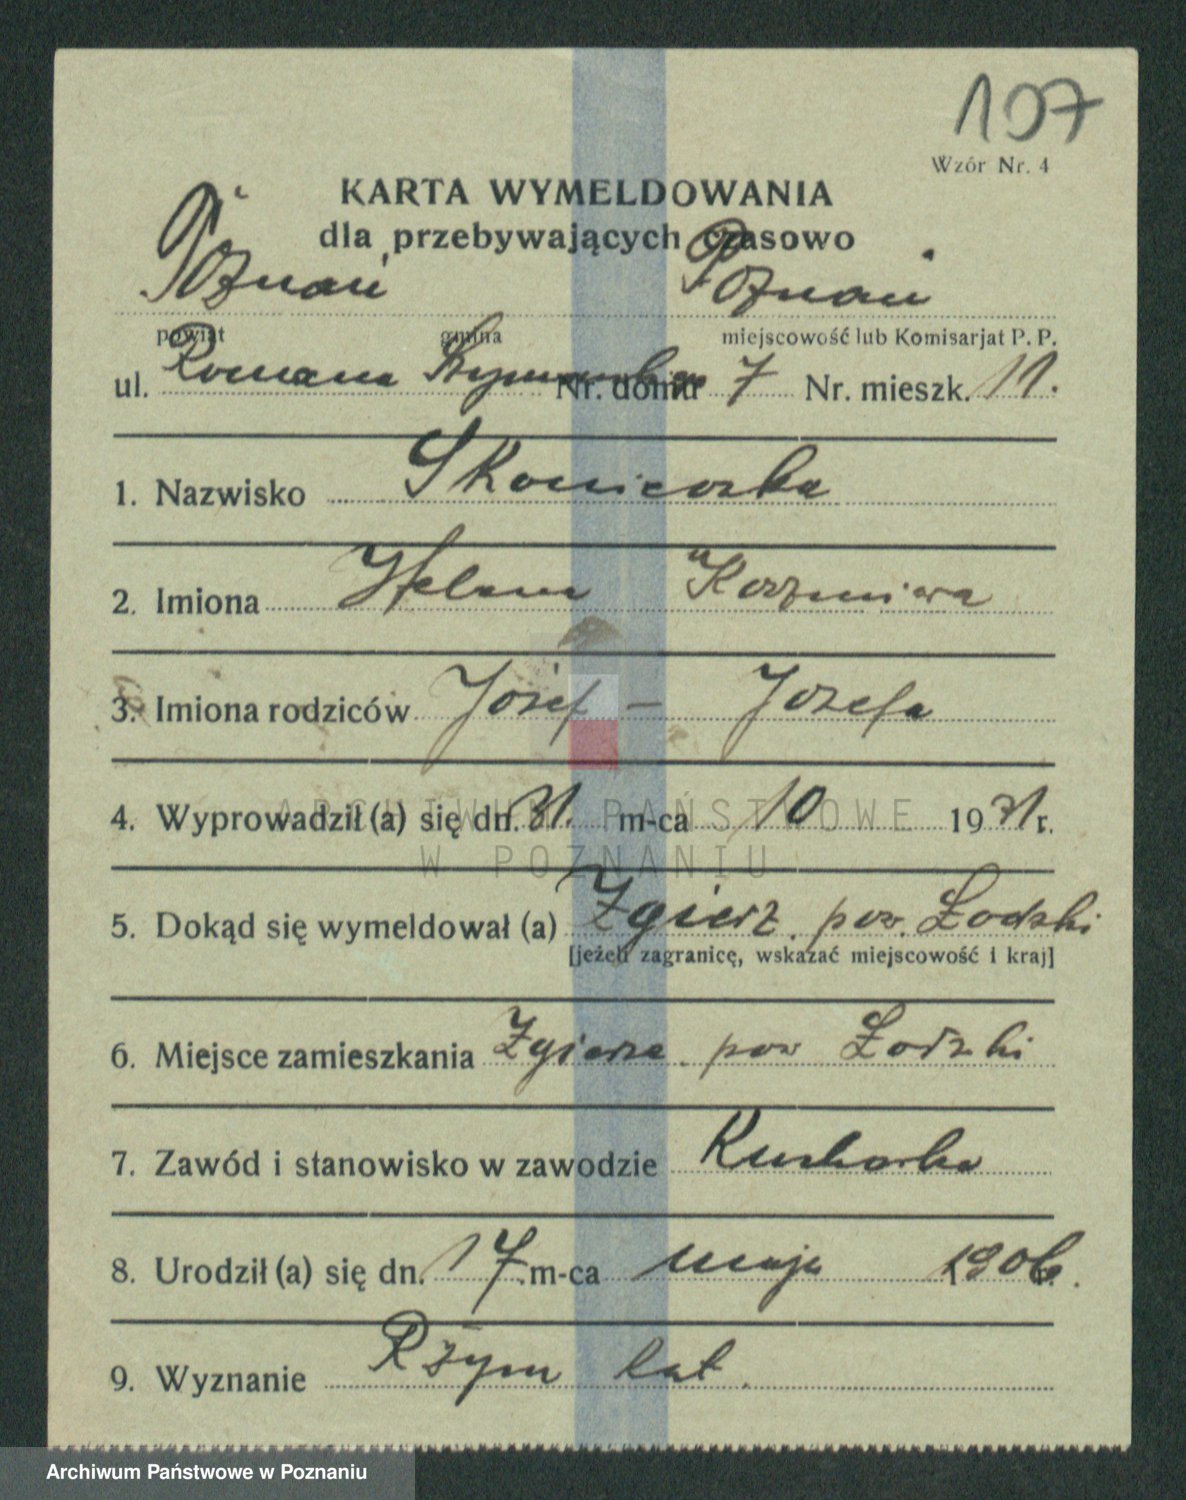 107
Wzór Nr. 4
KARTA WYMELDOWANIA
dla przebywających czasowo
Poznań Poznań
powiat gmina miejscowość lub Komisarjat P. P.
ul. Romana Nr. domu 7 Nr. mieszk. 11.
1. Nazwisko Skonieczka
2. Imiona Helena
3. Imiona rodziców Józef – Józefa
4. Wyprowadził (a) się dn. 31. m-ca 10 1931 r.
ARCHIWUM PAŃSTWOWE
W POZNANIU
5. Dokąd się wymeldował (a) Zgierz. pow. Łodzki
[jeżeli zagranicę, wskazać miejscowość i kraj]
6. Miejsce zamieszkania Zgierz. pow Łodzki
7. Zawód i stanowisko w zawodzie Kucharka
8. Urodził (a) się dn. 17. m-ca maja 1906.
9. Wyznanie Rzym kat.
Archiwum Państwowe w Poznaniu